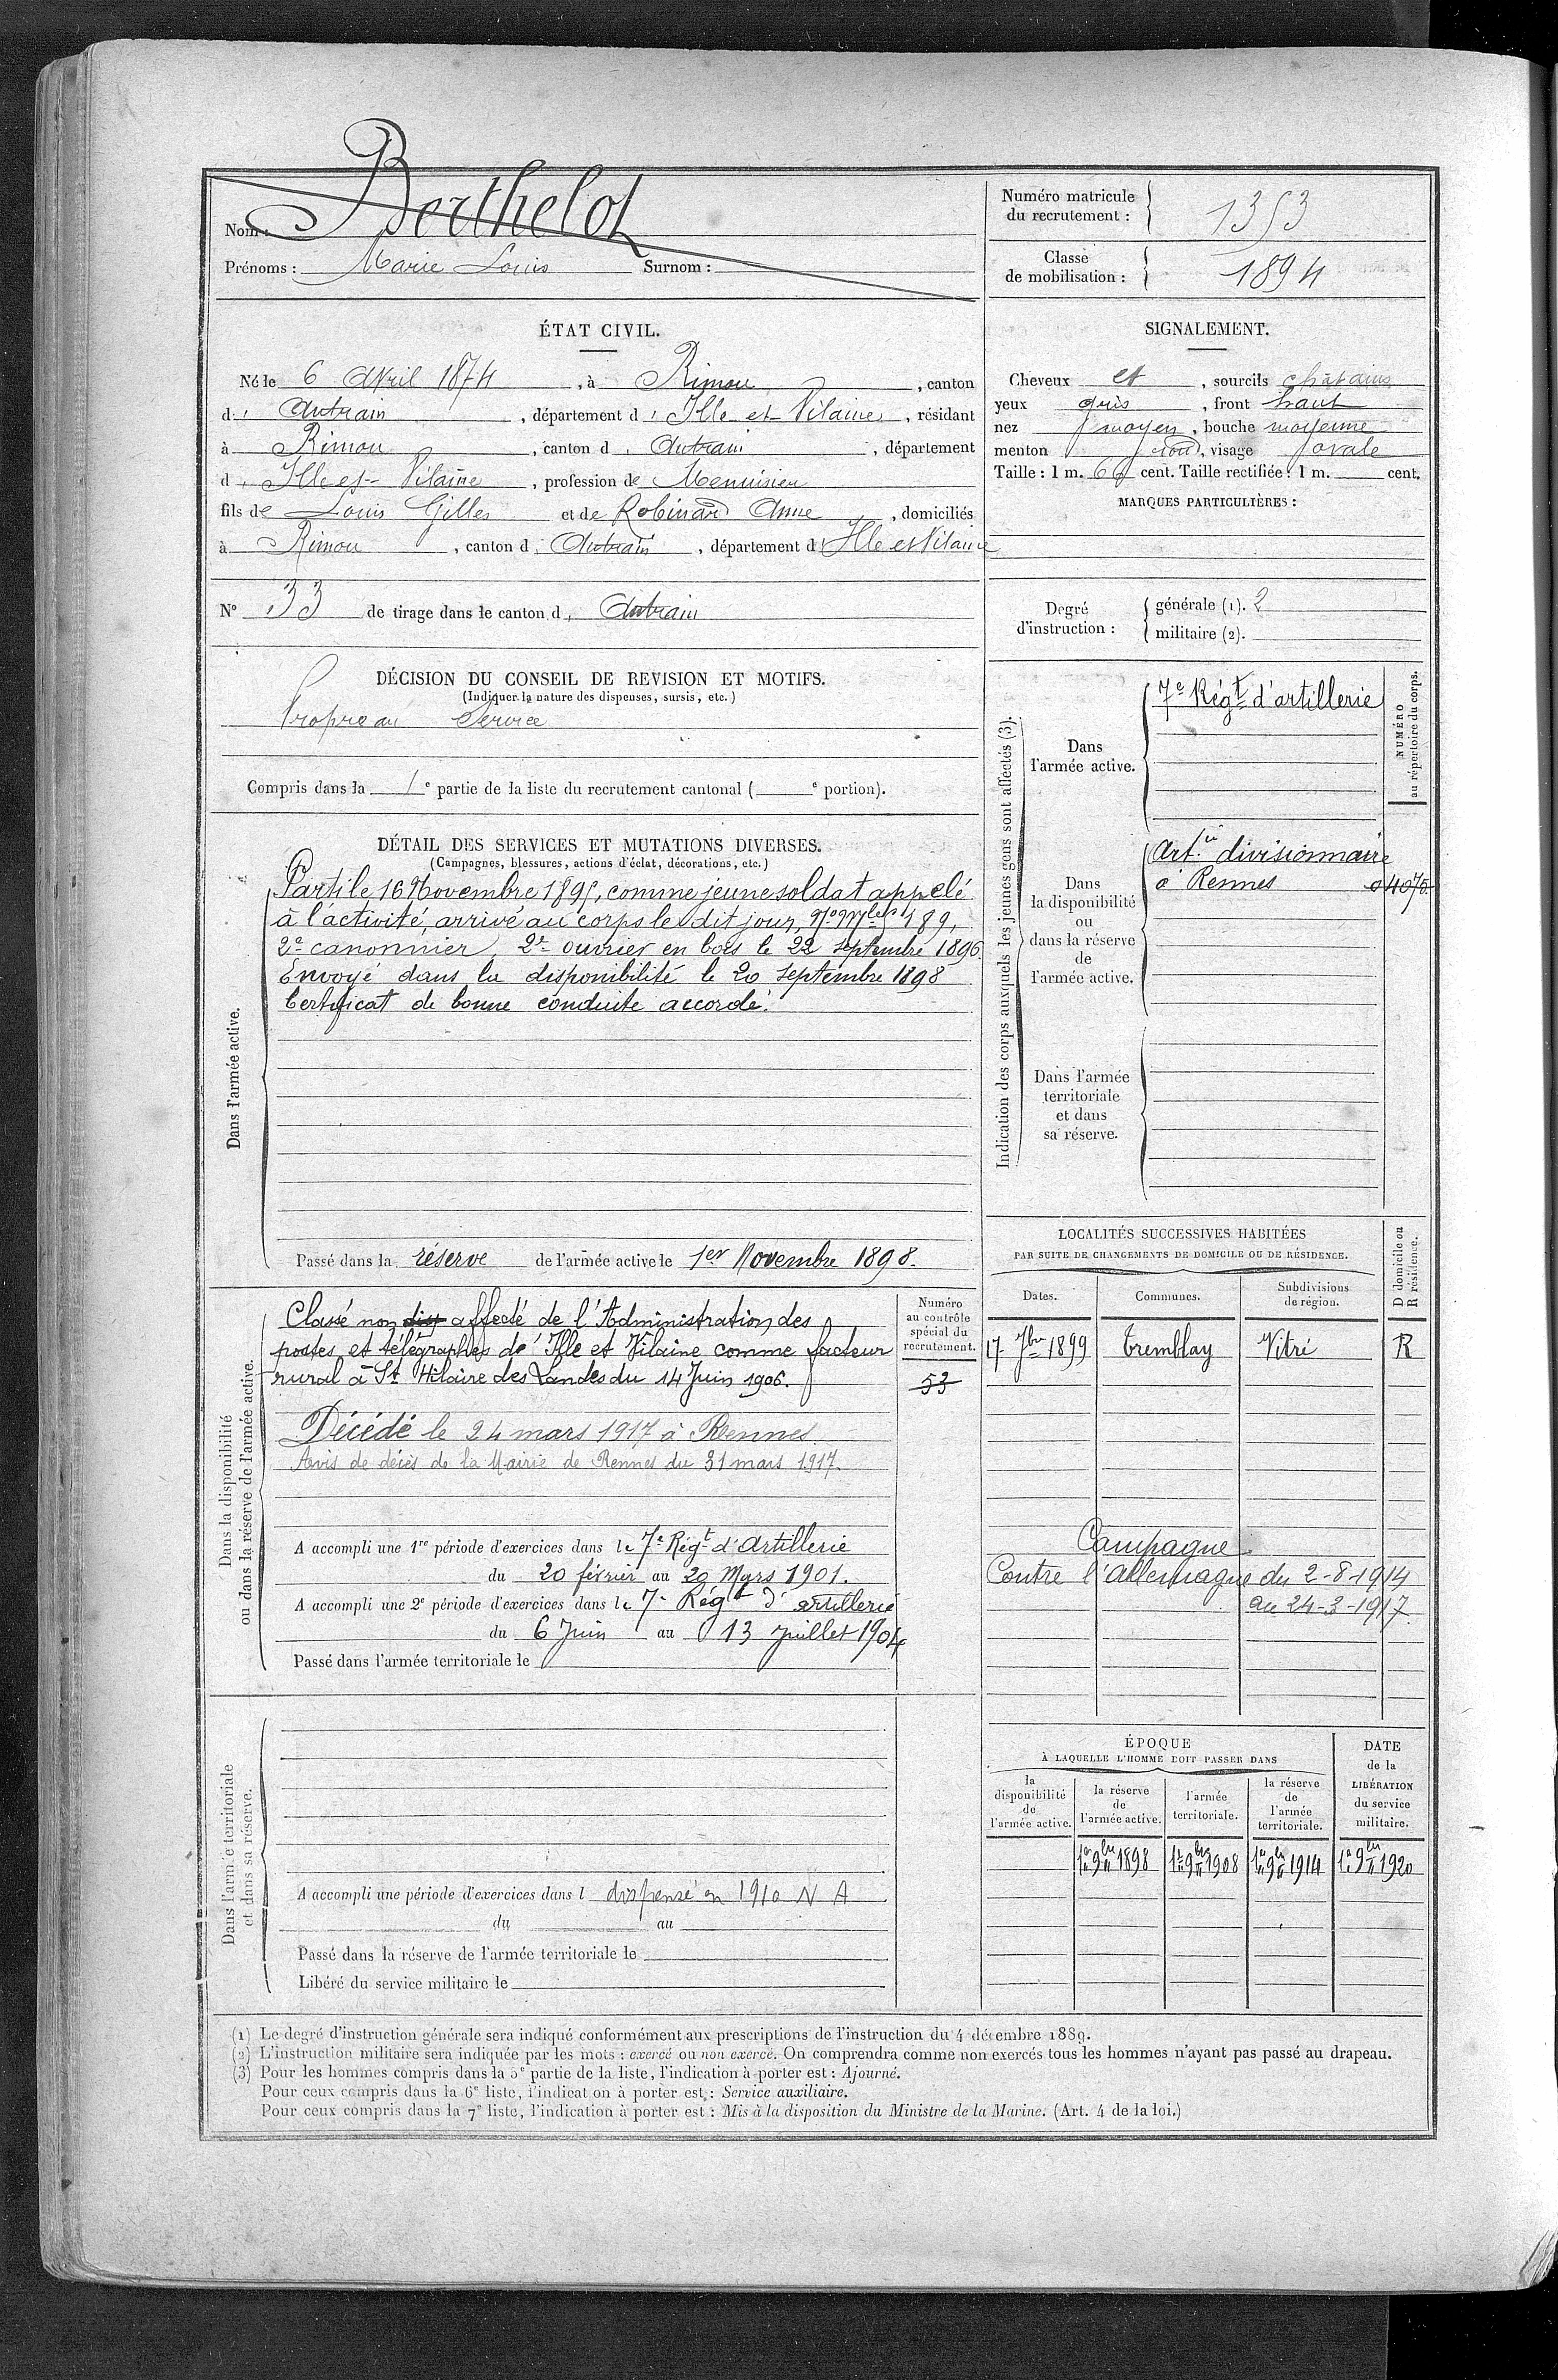 Nom : Berthelot
Prénoms : Marie Louis Surnom :
Numéro matricule du recrutement : 1353
Classe de mobilisation : 1894
ÉTAT CIVIL.
Né le 6 Avril 1874, à Rimou, canton
d' Antrain, département d' Ille et Vilaine, résidant
à Rimou, canton d' Antrain, département
d' Ille et Vilaine, profession de Menuisier
fils de Louis Gilles et de Robinard Anne, domiciliés
à Rimou, canton d' Antrain, département d' Ille et Vilaine
N° 33 de tirage dans le canton d' Antrain
SIGNALEMENT.
Cheveux et, sourcils châtains
yeux gris, front haut
nez moyen, bouche moyenne
menton rond, visage ovale
Taille : 1 m. 66 cent. Taille rectifiée : 1 m. cent.
MARQUES PARTICULIÈRES :
Degré d'instruction :
générale (1). 2
militaire (2).
DÉCISION DU CONSEIL DE REVISION ET MOTIFS.
(Indiquer la nature des dispenses, sursis, etc.)
Propre au Service
Compris dans la 1e partie de la liste du recrutement cantonal ( e portion).
DÉTAIL DES SERVICES ET MUTATIONS DIVERSES.
(Campagnes, blessures, actions d'éclat, décorations, etc.)
Dans l'armée active.
Parti le 16 Novembre 1895, comme jeune soldat appelé
à l'activité, arrivé au corps le dit jour, No Mle 189,
2e canonnier, 2e ouvrier en bois le 22 septembre 1896.
Envoyé dans la disponibilité le 20 septembre 1898
Certificat de bonne conduite accordé.
Passé dans la réserve de l'armée active le 1er Novembre 1898.
Indication des corps auxquels les jeunes gens sont affectés (3).
NUMÉRO au répertoire du corps.
Dans l'armée active.
7e Régt d'artillerie
Dans la disponibilité ou dans la réserve de l'armée active.
Artie divisionnaire
à Rennes 4075
Dans l'armée territoriale et dans sa réserve.
Dans la disponibilité ou dans la réserve de l'armée active.
Numéro au contrôle spécial du recrutement.
53
Classé non dis affecté de l'Administration des
postes et télégraphes de l'Ille et Vilaine comme facteur
rural à St Hilaire des Landes du 14 Juin 1906.
Décédé le 24 mars 1917 à Rennes
Avis de décès de la Mairie de Rennes du 31 mars 1917.
A accompli une 1re période d'exercices dans le 7e Régt d'Artillerie
du 20 février au 20 Mars 1901.
A accompli une 2e période d'exercices dans le 7e Régt d'artillerie
du 6 Juin au 13 Juillet 1904
Passé dans l'armée territoriale le
LOCALITÉS SUCCESSIVES HABITÉES
PAR SUITE DE CHANGEMENTS DE DOMICILE OU DE RÉSIDENCE.
D domicile ou R résidence.
Dates. Communes. Subdivisions de région.
17 7bre 1899 Tremblay Vitré R
Campagne
Contre l'Allemagne du 2-8-1914
au 24-3-1917.
Dans l'armée territoriale et dans sa réserve.
A accompli une période d'exercices dans l dispensé en 1910 N A
du au
Passé dans la réserve de l'armée territoriale le
Libéré du service militaire le
ÉPOQUE
À LAQUELLE L'HOMME DOIT PASSER DANS
la disponibilité de l'armée active. la réserve de l'armée active. l'armée territoriale. la réserve de l'armée territoriale.
DATE de la LIBÉRATION du service militaire.
1er 9bre 1898 1er 9bre 1908 1er 9bre 1914 1er 9bre 1920
(1) Le degré d'instruction générale sera indiqué conformément aux prescriptions de l'instruction du 4 décembre 1889.
(2) L'instruction militaire sera indiquée par les mots : exercé ou non exercé. On comprendra comme non exercés tous les hommes n'ayant pas passé au drapeau.
(3) Pour les hommes compris dans la 5e partie de la liste, l'indication à porter est : Ajourné.
Pour ceux compris dans la 6e liste, l'indication à porter est : Service auxiliaire.
Pour ceux compris dans la 7e liste, l'indication à porter est : Mis à la disposition du Ministre de la Marine. (Art. 4 de la loi.)